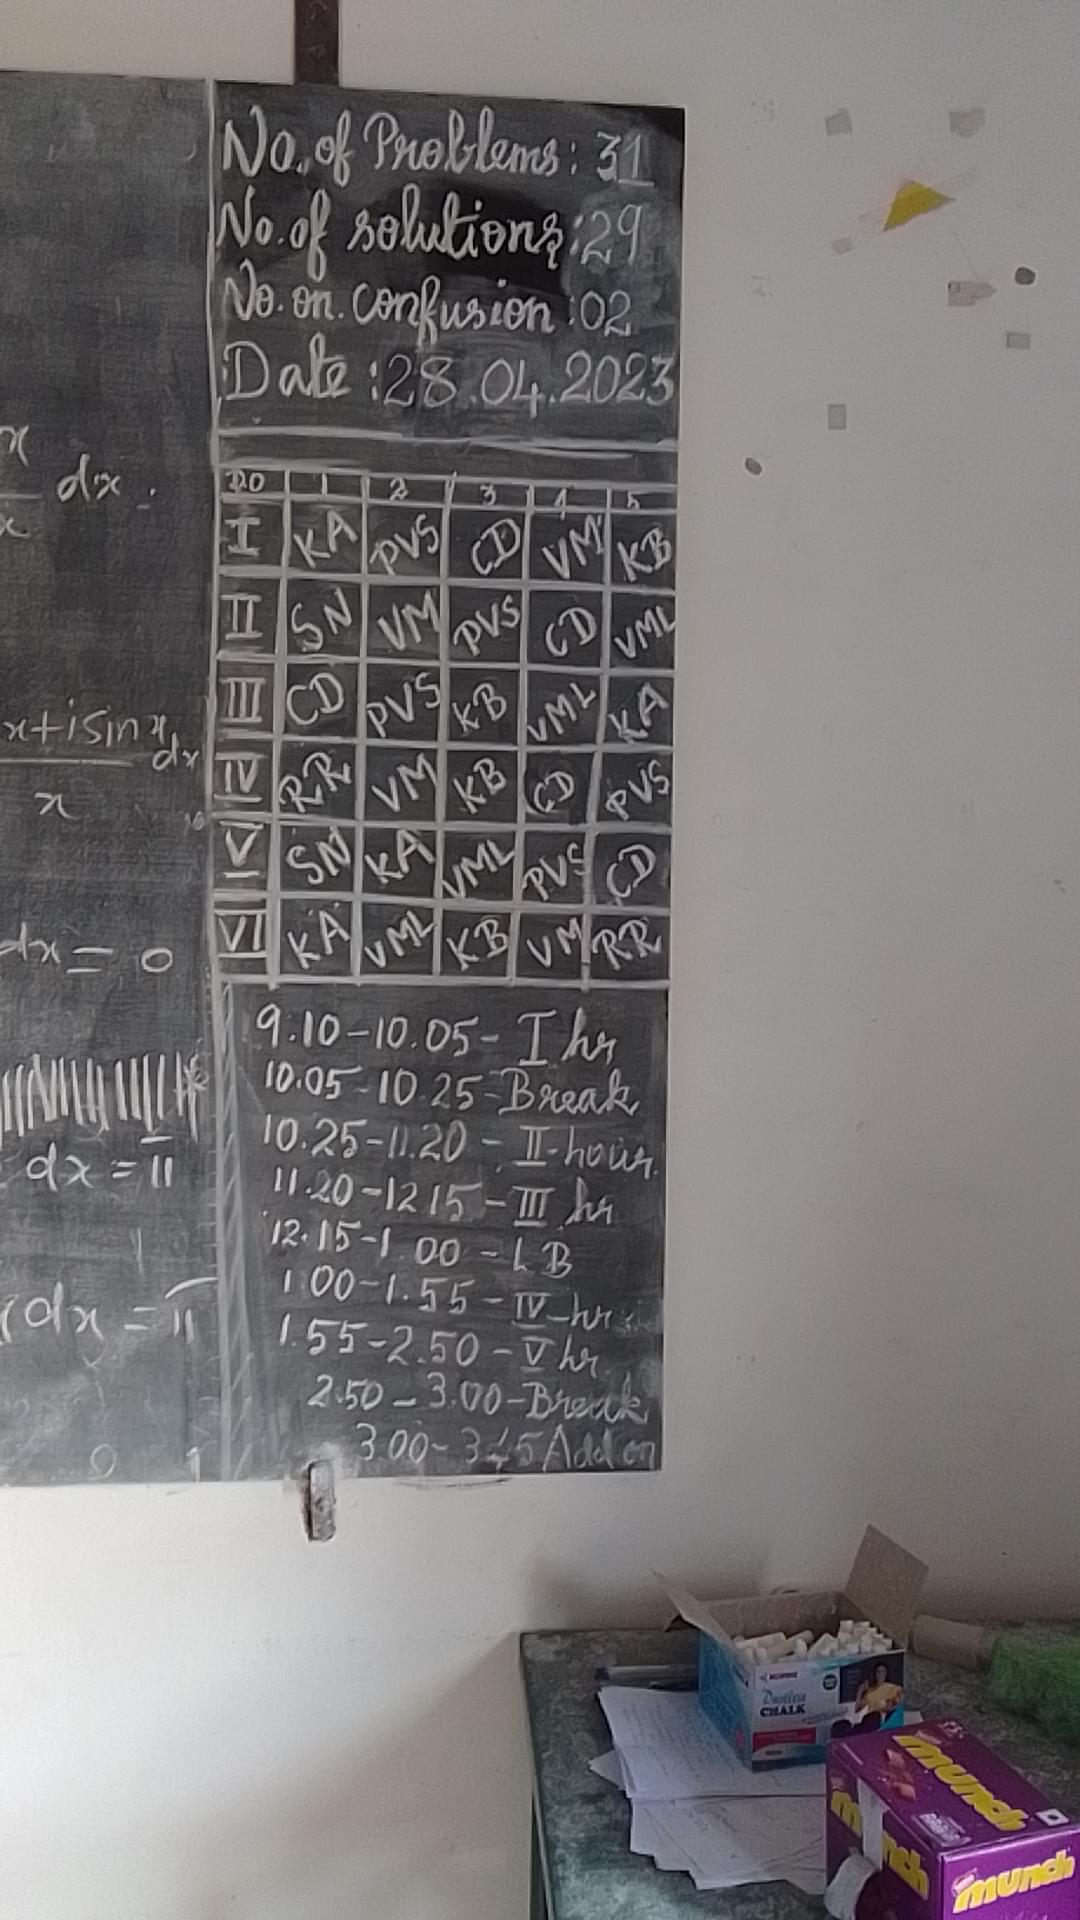 No. of Problems: 31
No. of solutions: 29
No. on. confusion: 02
Date: 28.04.2023
DO 1 2 3 4 5
I KA PVS CD VM KB
II SN VM PVS CD VML
III CD PVS KB VML KA
IV RR VM KB CD PVS
V SN KA VML PVS CD
VI KA VML KB VM RR
9.10-10.05- I hr
10.05-10.25-Break
10.25-11.20 - II-hour.
11.20-12 15-III hr
12.15-1.00 - L B
1.00-1.55-IV-hr
1.55-2.50-V hr
2.50-3.00-Break
3.00-3.45 Add on
x
dx.
x
x+isin x dx
x
dx = 0
dx = π
dx = π
Dustless
CHALK
munch
munch
munch